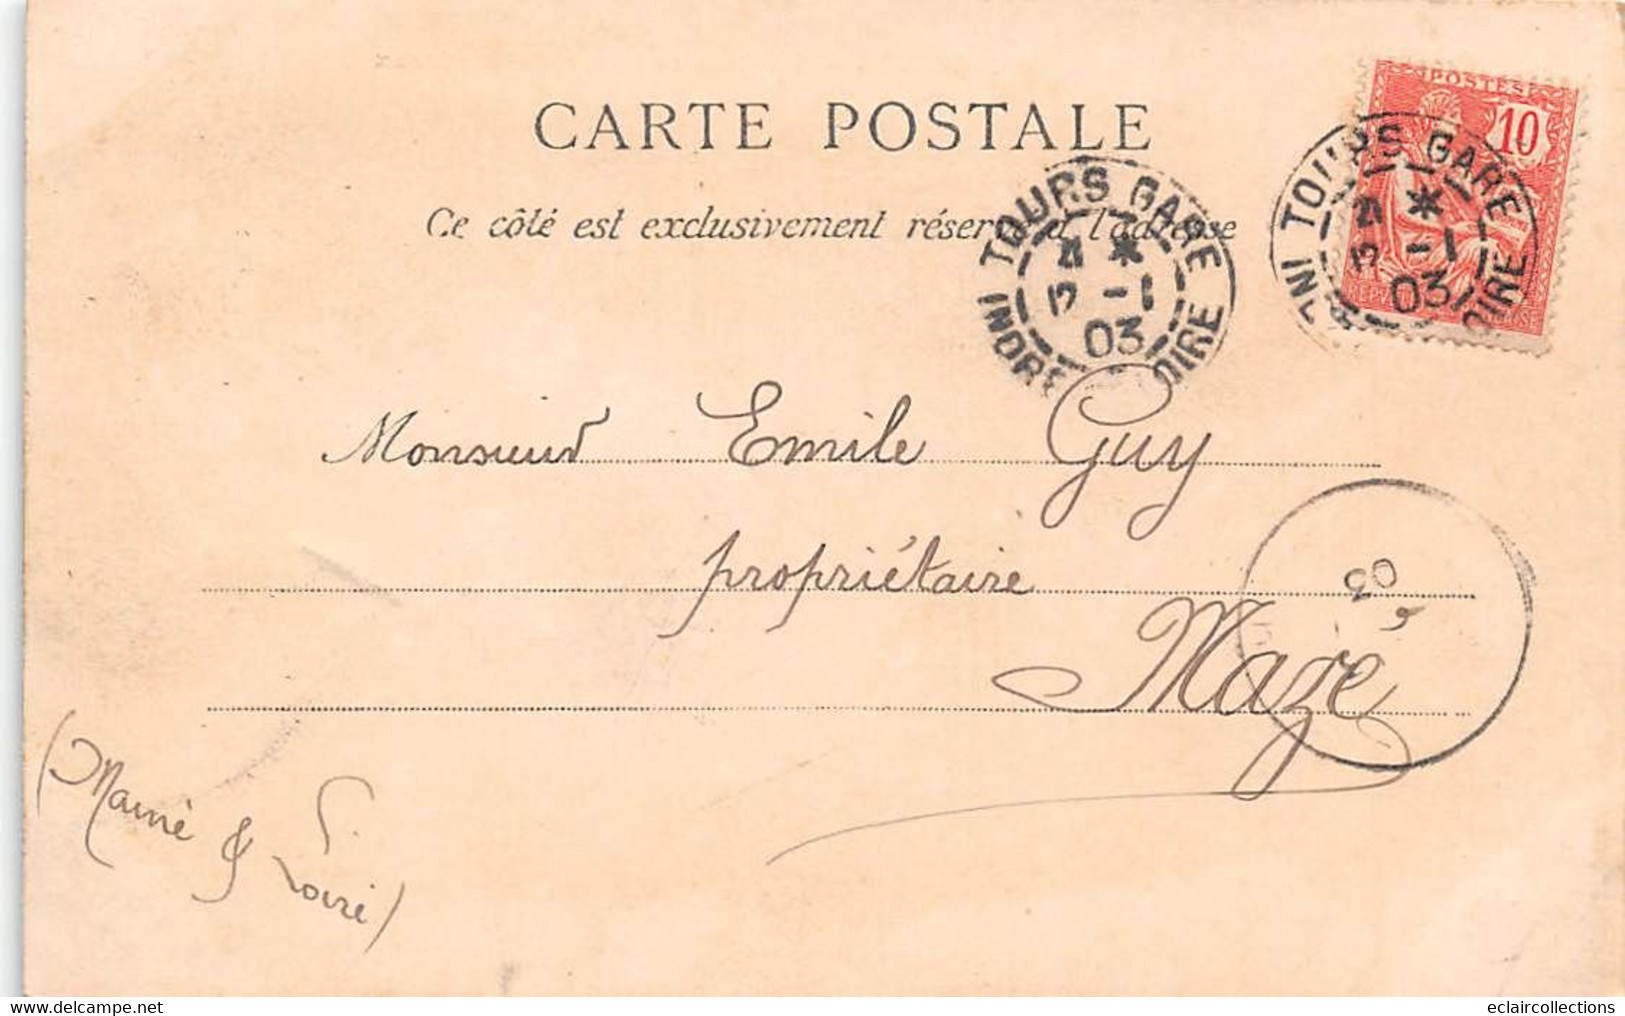 CARTE POSTALE
Ce côté est exclusivement réservé à l'adresse
POSTES
10
TOURS GARE
03
INDRE LOIRE
TOURS GARE
03
OIRE
Monsieur Emile Guy
propriétaire
Mazé
03
(Maine & Loire)
www.delcampe.net
eclaircollections